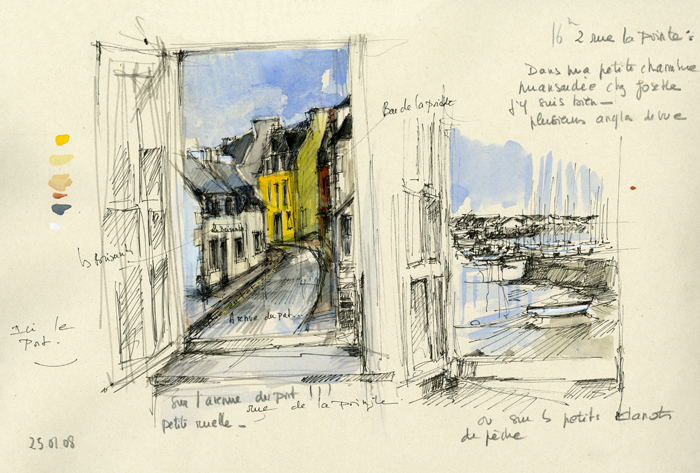 16h 2 rue la pointe :
Dans ma petite chambre
mansardée chez Josette
j'y suis bien —
plusieurs angles de vue
Bar de la
ici le
port.
Avenue du port...
sur l'avenue du port !!!
rue de la
petite ruelle —
ou sur les petits canots
de pêche
25.01.08